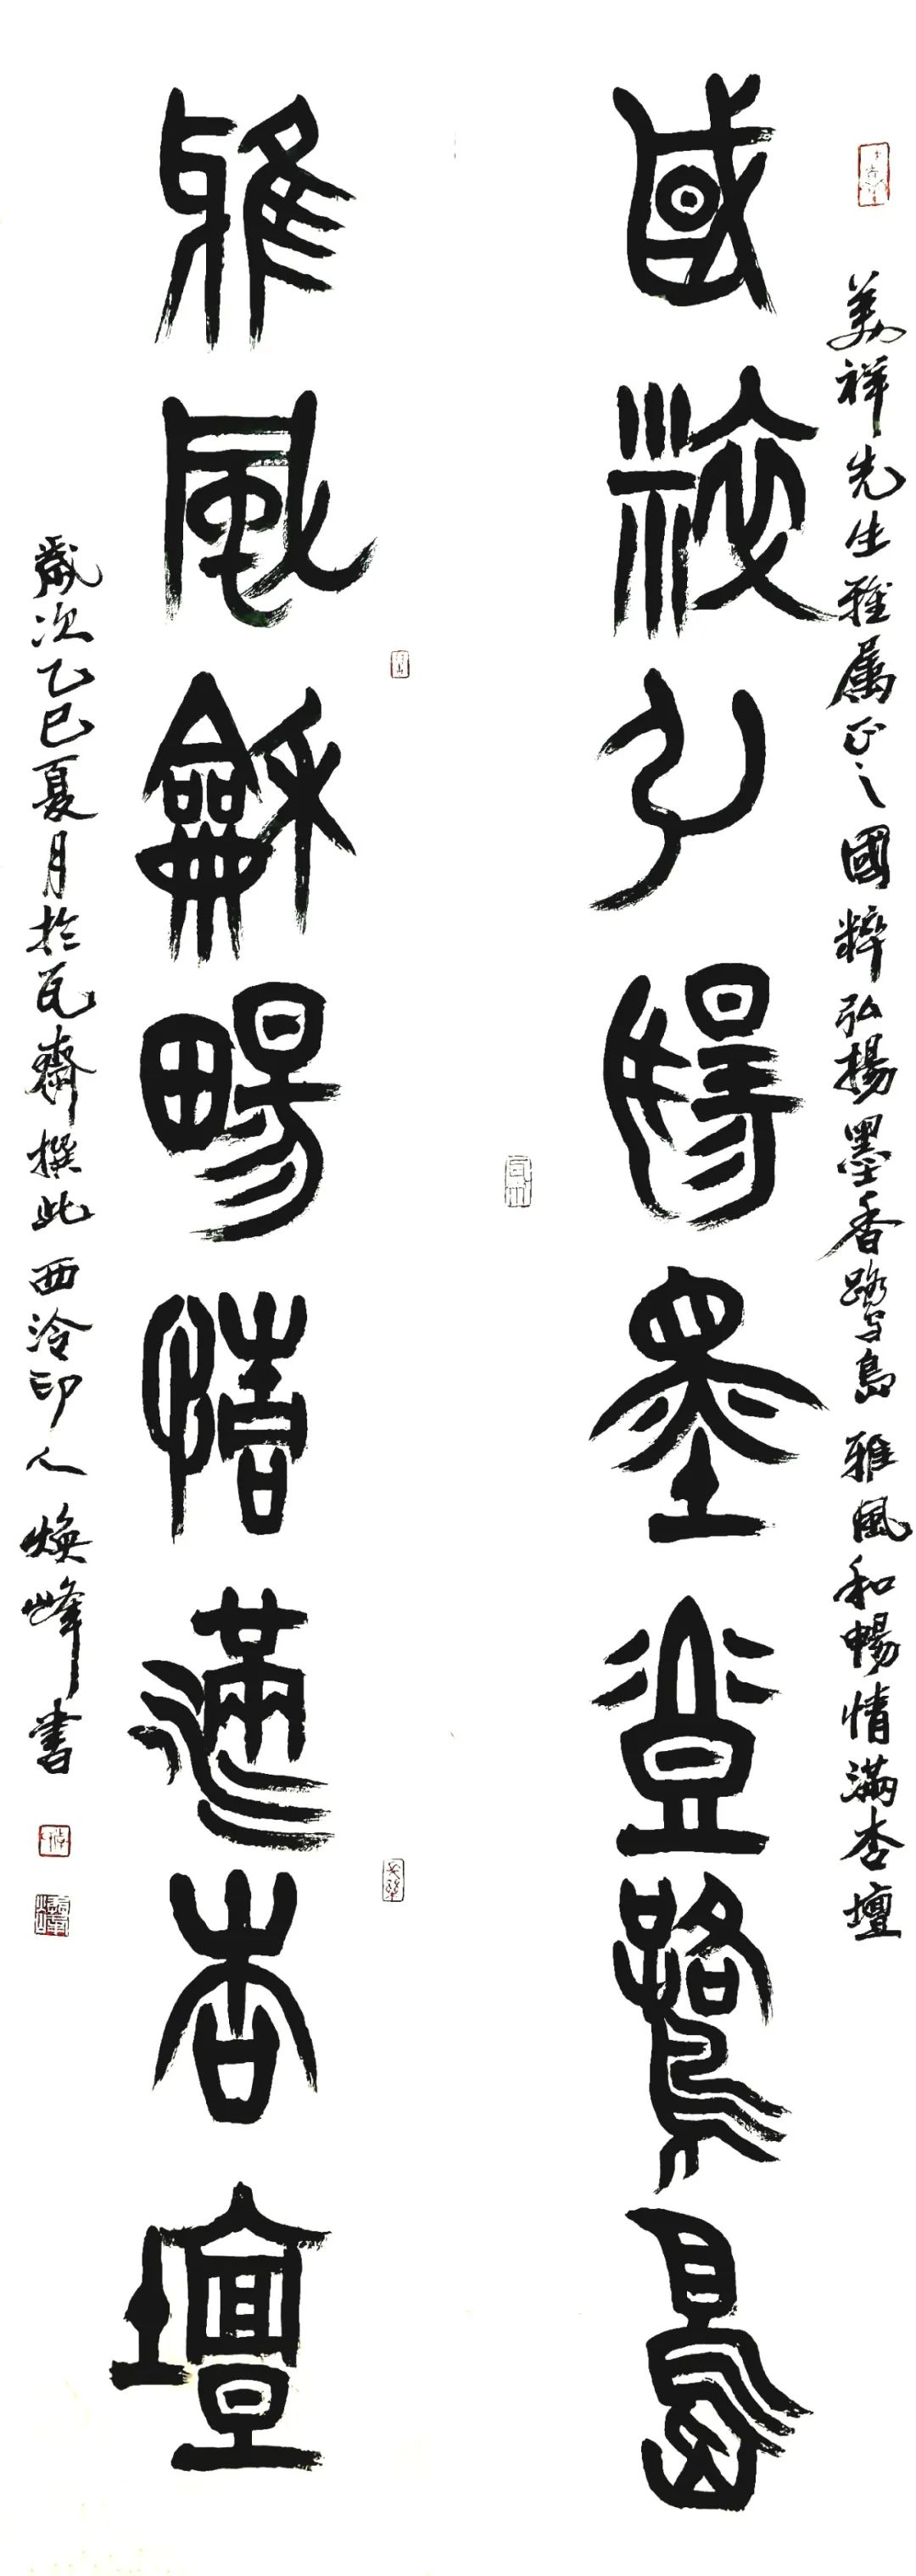 美祥先生雅属正之國粹弘揚墨香鷺島雅風和暢情滿杏壇
國粹弘揚墨香鷺島
雅風龢暢情滿杏壇
歲次乙巳夏月於瓦齋撰此西泠印人煥峰書